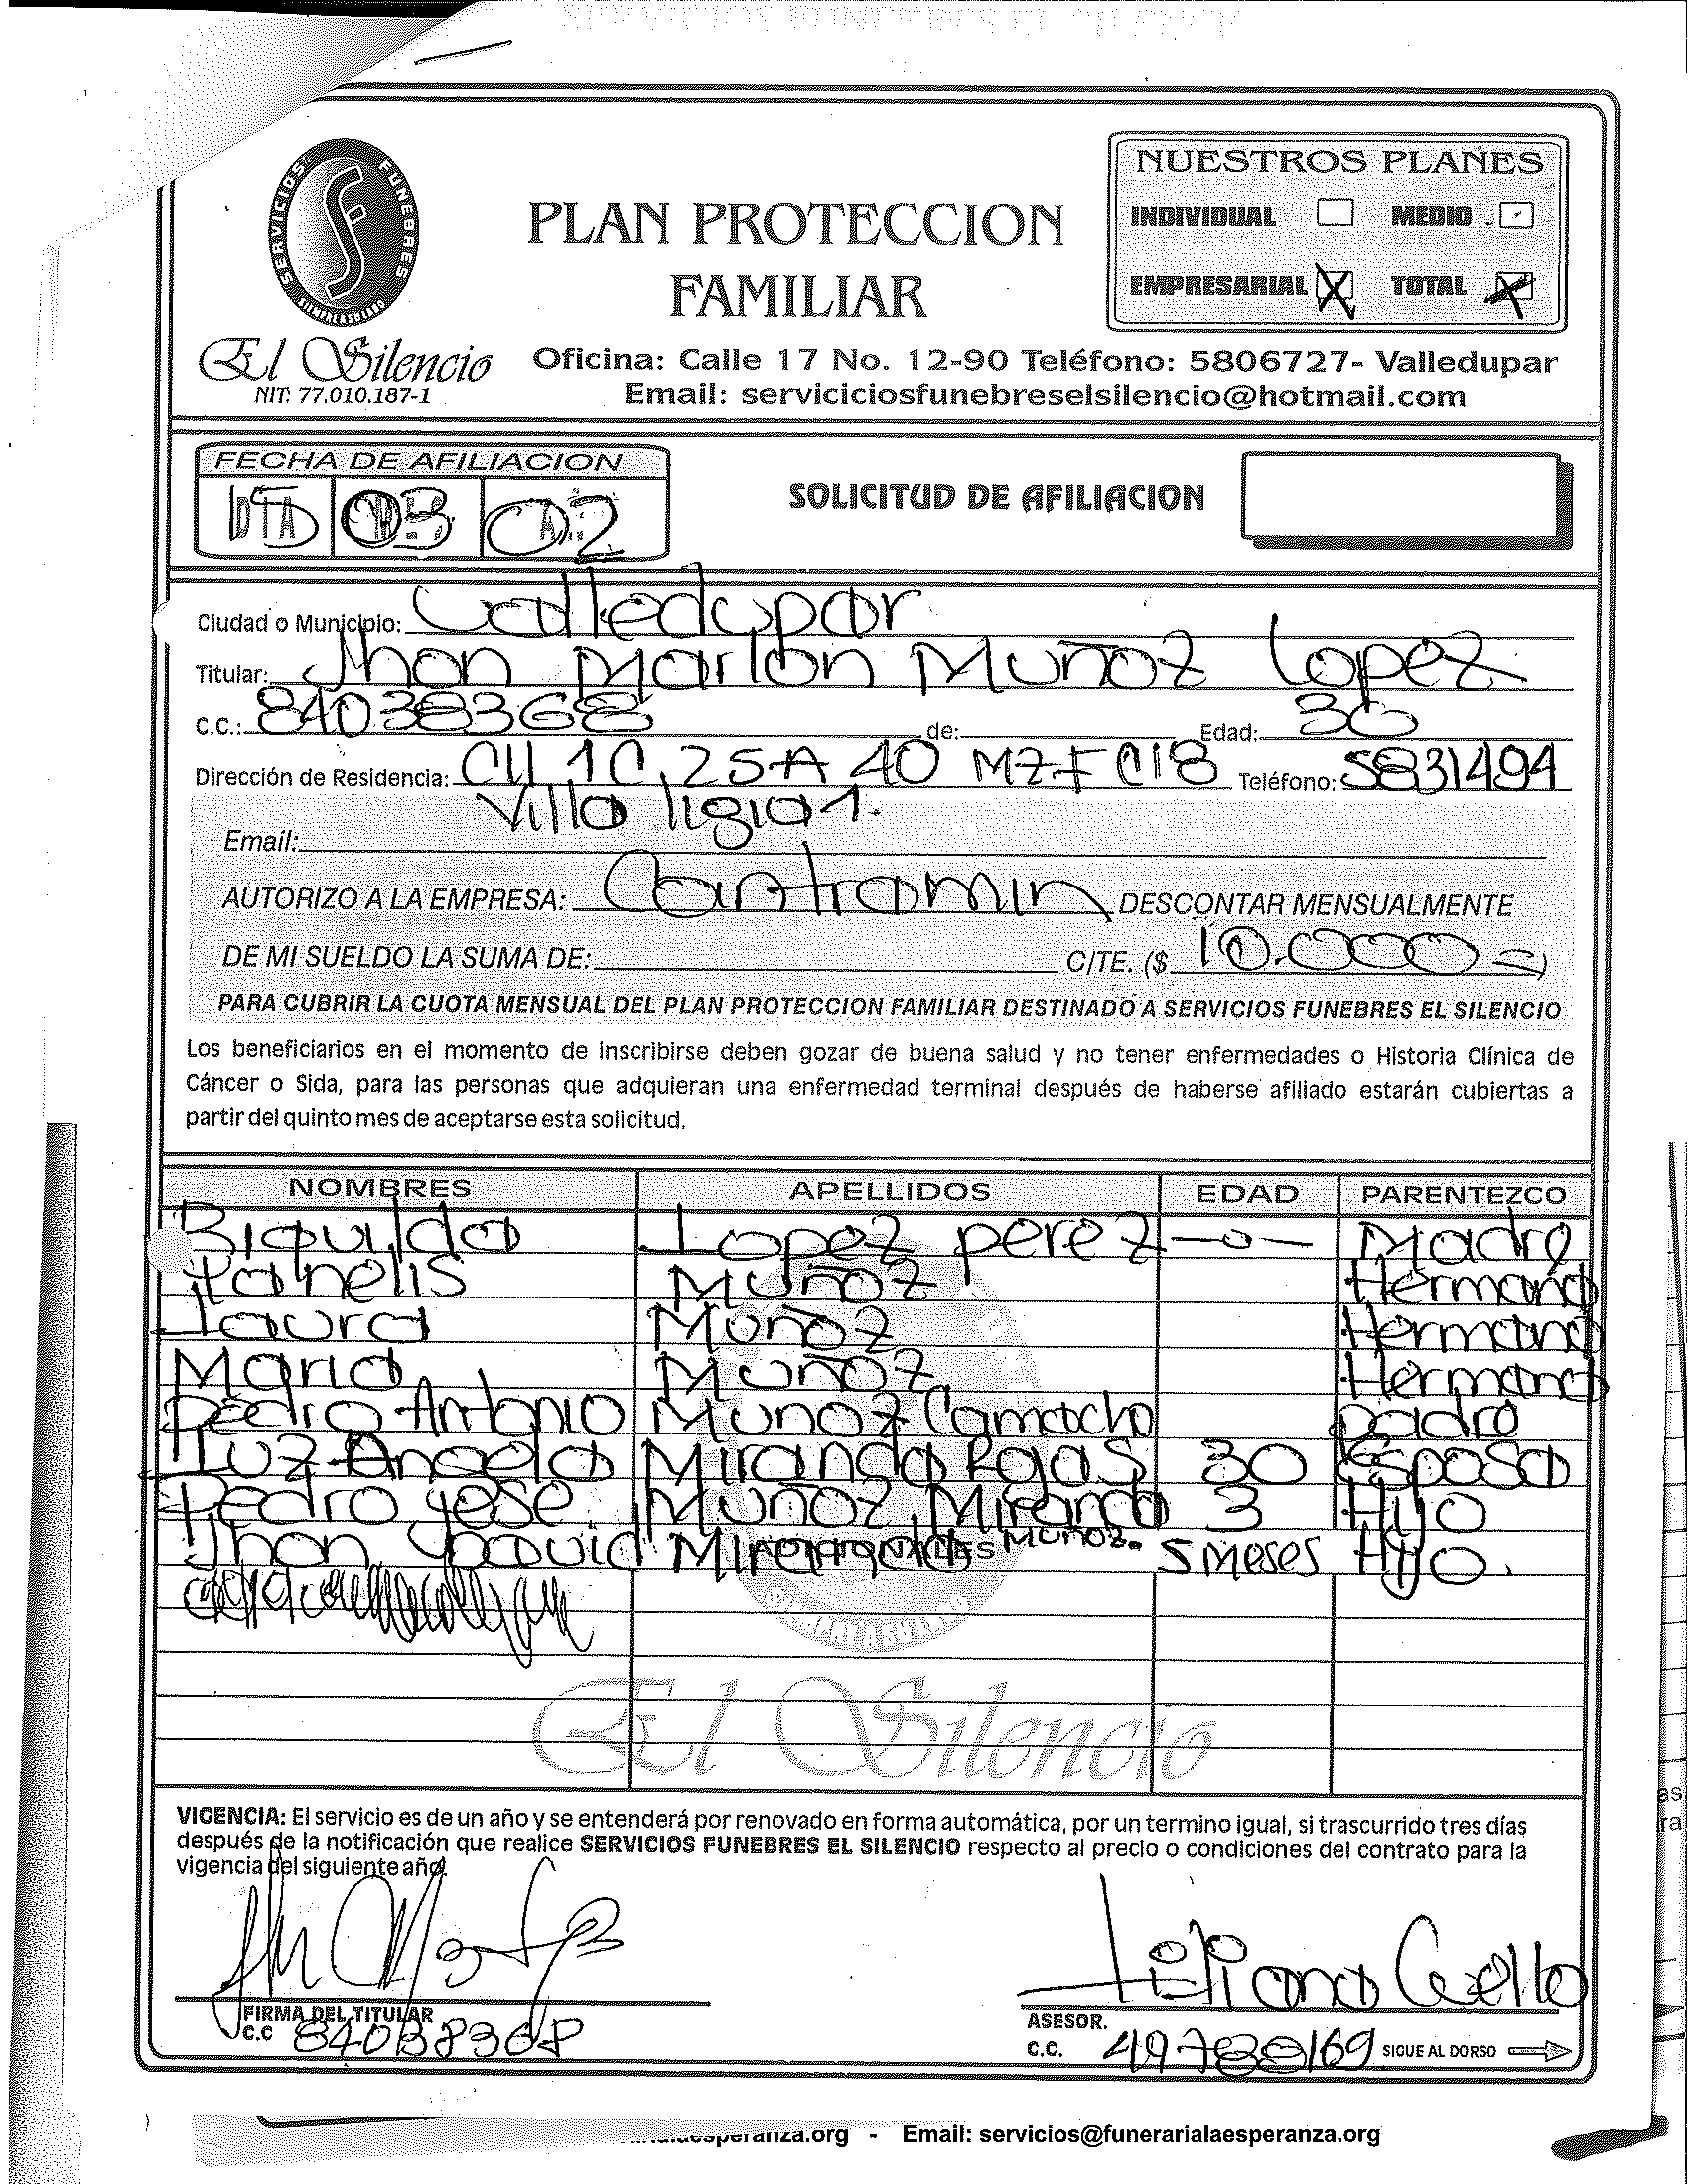 NUESTROS PLANES
INDIVIDUAL MEDIO
EMPRESARIAL X TOTAL X
SERVICIOS FUNEBRES
PLAN PROTECCION
FAMILIAR
El Silencio
NIT: 77.010.187-1
Oficina: Calle 17 No. 12-90 Teléfono: 5806727- Valledupar
Email: serviciciosfunebreselsilencio@hotmail.com
FECHA DE AFILIACION
DIA 15 03 02
SOLICITUD DE AFILIACION
Ciudad o Municipio: Valledupar
Titular: Jhon Marlon Muñoz Lopez
C.C.: 84038368 de: Edad: 36
Dirección de Residencia: Cll 1C 25A 40 MZ F C18 Teléfono: 5831494
Villa ligia 1.
Email:
AUTORIZO A LA EMPRESA: Contramin DESCONTAR MENSUALMENTE
DE MI SUELDO LA SUMA DE: C/TE. ($ 10.000=)
PARA CUBRIR LA CUOTA MENSUAL DEL PLAN PROTECCION FAMILIAR DESTINADO A SERVICIOS FUNEBRES EL SILENCIO
Los beneficiarios en el momento de inscribirse deben gozar de buena salud y no tener enfermedades o Historia Clínica de
Cáncer o Sida, para las personas que adquieran una enfermedad terminal después de haberse afiliado estarán cubiertas a
partir del quinto mes de aceptarse esta solicitud.
NOMBRES APELLIDOS EDAD PARENTEZCO
Biquilda Lopez perez -o- Madre
Yanelis Muñoz Hermana
Laura Muñoz Hermana
Maria Muñoz Hermana
Pedro Antonio Munoz Camacho padre
Luz Angela Miranda Rojas 30 Esposa
Pedro Jose Muñoz Miranda 3 Hijo
Jhon David Miranda Muñoz. 5 meses Hijo.
El Silencio
VIGENCIA: El servicio es de un año y se entenderá por renovado en forma automática, por un termino igual, si trascurrido tres días
después de la notificación que realice SERVICIOS FUNEBRES EL SILENCIO respecto al precio o condiciones del contrato para la
vigencia del siguiente año.
Liliana Cuello
FIRMA DEL TITULAR
C.C 84038368
ASESOR.
C.C. 49738169 SIGUE AL DORSO
Email: servicios@funerarialaesperanza.org